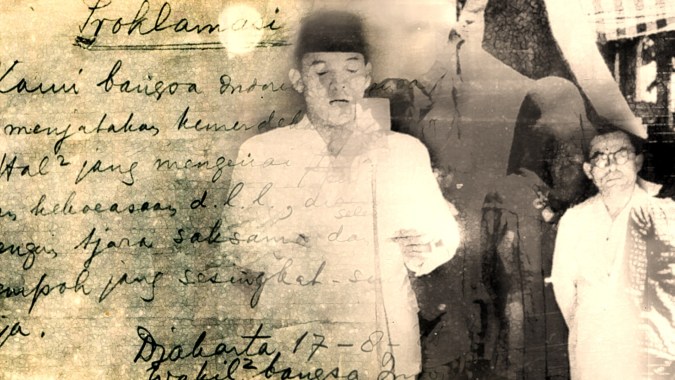 Proklamasi
Kami bangsa Indone
menjatakan kemerde
Hal² jang mengenai
n kekoeasaan d.l.l.,
engan tjara saksama da
empoh jang sesingkat-si
ja.
Djakarta 17-8-
Wakil² bangsa